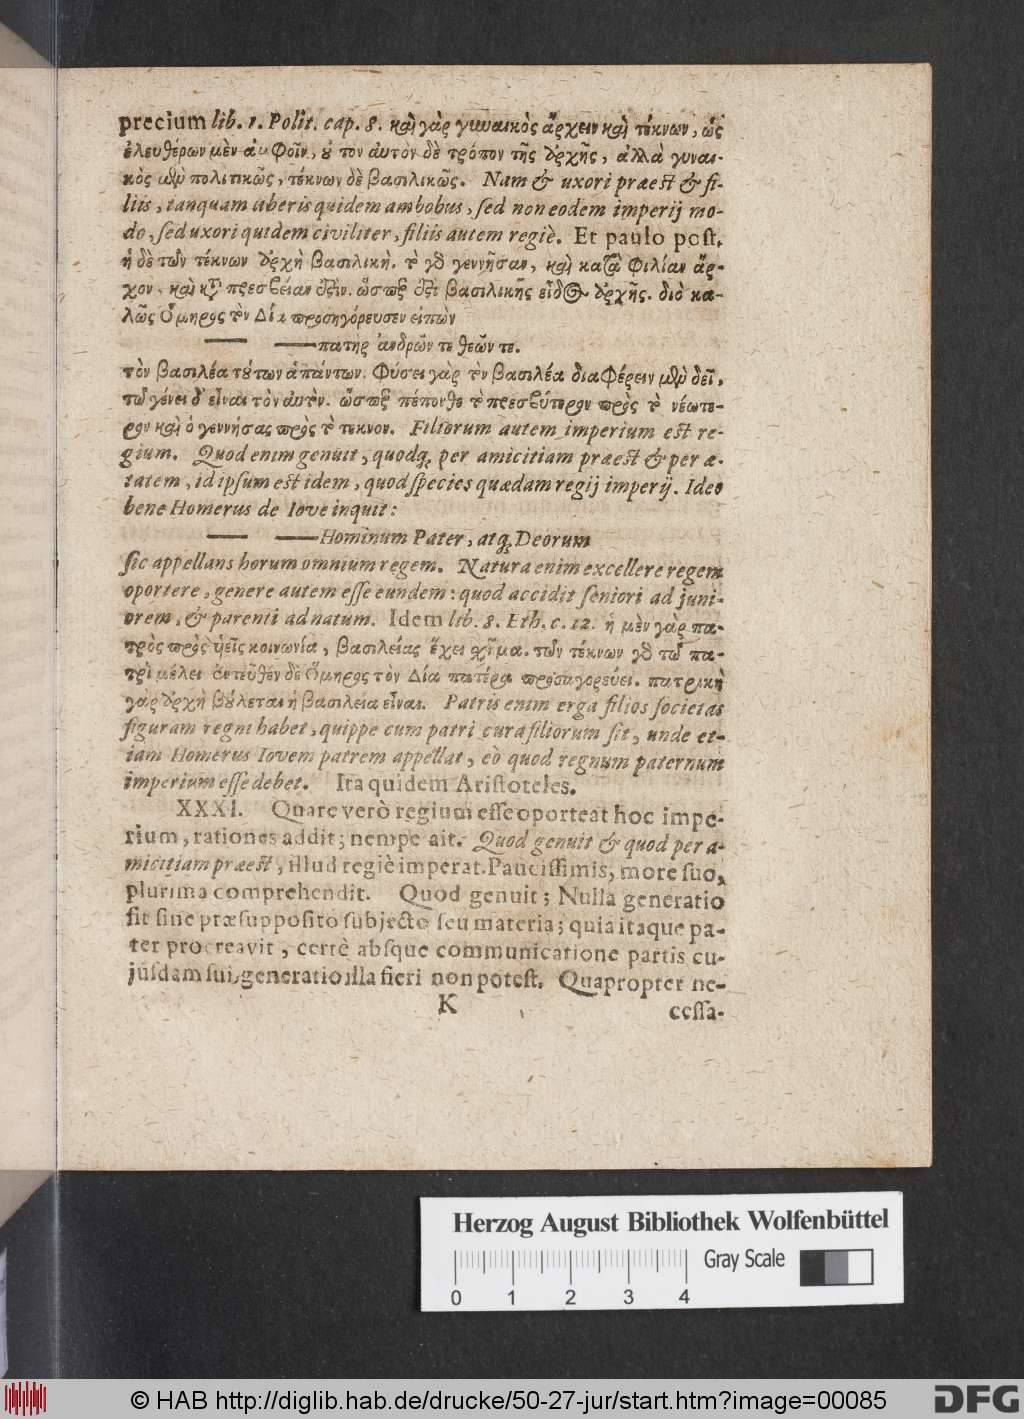 precium lib. 1. Polit. cap. 8. καὶ γὰρ γυναικὸς ἄρχειν καὶ τέκνων, ὡς
ἐλευθέρων μὲν ἀμφοῖν, ȣ̓ τον ἀυτὸν δὲ τρόπον τῆς ἀρχῆς, ἀλλὰ γυναι-
κὸς μὲν πολιτικῶς, τέκνων δὲ βασιλικῶς. Nam & uxori præest & fi-
liis, tanquam liberis quidem ambobus, ſed non eodem imperij mo-
do, ſed uxori quidem civiliter, filiis autem regiè. Et paulo poſt.
ἡ δὲ τῶν τέκνων ἀρχὴ βασιλικὴ. τὸ γὸ γεννῆσαν, καὶ κατὰ φιλίαν ἄρ-
χον, καὶ κατὰ πρεσβείαν ἐστὶν. ὥσπερ ἐστὶ βασιλικῆς εἶδος ἀρχῆς. διὸ κα-
λῶς Ὅμηρος τὸν Δία προσηγόρευσεν ειπὼν
—— ——πατηρ ἀνδρῶν τε θεῶν τε.
τὸν βασιλέα τȣ́των ἁπάντων. φύσει γὰρ τὸν βασιλέα διαφέρειν μὲν δεῖ,
τῷ γένει δ' εἶναι τὸν ἀυτὸν. ὥσπερ πέπονθε τὸ πρεσβύτερον πρὸς τὸ νέωτε-
ρον καὶ ὁ γεννήσας πρὸς τὸ τεκνον. Filiorum autem imperium est re-
gium. Quod enim genuit, quodq; per amicitiam præest & per æ-
tatem, id ipſum est idem, quod ſpecies quædam regij imperij. Ideo
bene Homerus de Iove inquit:
—— ——Hominum Pater, atq; Deorum
ſic appellans horum omnium regem. Natura enim excellere regem
oportere, genere autem eſſe eundem: quod accidit ſeniori ad juni-
orem, & parenti ad natum. Idem lib. 8. Eth. c. 12. ἡ μὲν γὰρ πα-
τρὸς πρὸς ὑεῖς κοινωνία, βασιλείας ἔχει σχῆμα. τῶν τέκνων γὸ τῷ πα-
τρὶ μέλει ἐντεῦθέν δὲ Ὅμηρος τὸν Δία πατέρα προσαγορεύει. πατρικὴ
γὰρ ἀρχὴ βȣ́λεται ἡ βασιλεια εἶναι. Patris enim erga filios ſocietas
figuram regni habet, quippe cum patri cura filiorum ſit, unde et-
iam Homerus Iovem patrem appellat, eò quod regnum paternum
imperium eſſe debet. Ita quidem Ariſtoteles.
XXXI. Quare verò regium eſſe oporteat hoc impe-
rium, rationes addit; nempe ait. Quod genuit & quod per a-
micitiam præest, illud regiè imperat. Pauciſſimis, more ſuo,
plurima comprehendit. Quod genuit; Nulla generatio
fit ſine præſuppoſito ſubjecto ſeu materia; quia itaque pa-
ter procreavit, certè abſque communicatione partis cu-
júsdam ſui, generatio illa fieri non poteſt. Quapropter ne-
K
ceſſa-
Herzog August Bibliothek Wolfenbüttel
Gray Scale
0 1 2 3 4
© HAB http://diglib.hab.de/drucke/50-27-jur/start.htm?image=00085
DFG